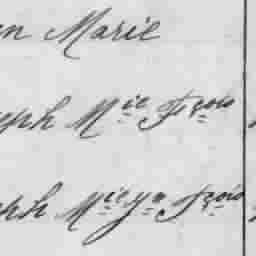 en Marie
eph Mie Frçois
ph Mie Yn Frçois